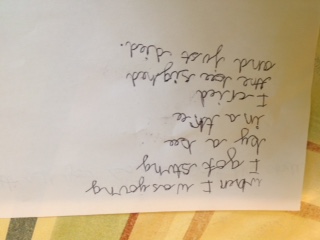 when I was young
I got stung
by a bee
in a tree
I cried
the bee sighed
and just died.